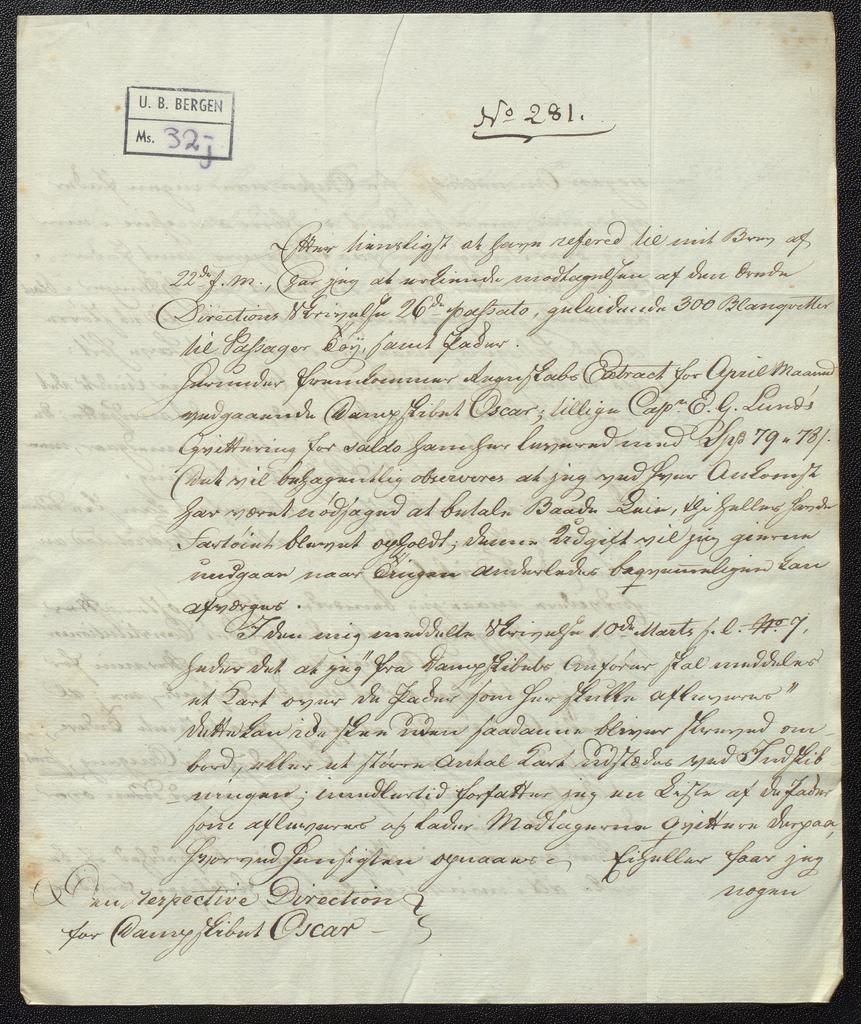 U. B. BERGEN
Ms. 32j
No 281.
Efter tienstligst at have refered til mit Brev af
22de f. m., har jeg at erkiende modtagelsen af den ærede
Directions Skrivelse 26de passato, geleidende 300 Blanqvetter
til Passager Töy, samt Pader.
Herunder fremkommer Regnskabs Extract for April Maaned
vedgaaende Dampskibet Oscar; tillige Capn E. G. Lunds
Qvittering for saldo ham her levered med Sps 79 " 78/.
Det vil behagentlig observeres at jeg ved hver Ankomst
har været nödsaged at betale Baads Leie, thi hellers havde
Fartöiet blevet opholdt; denne Udgift vil jeg gierne
undgaae naar Tingen anderledes beqvemmeligen kan
afværges.
I den mig meddelte Skrivelse 10de Marts s. l. No 7,
heder det at jeg "fra Dampskibets Anförer skal meddeles
et Kart over de Pader som her skulle afleveres"
dette kan ikke skee uden saadanne bliver skreved om-
bord, eller et större Antal Kart udstædes ved Indskib
ningen; imedlertid forfatter jeg en Liste af de Pader
som afleveres og lader Modtagerne qvittere derpaa,
hvorved Hensigten opnaaes. Ei heller faar jeg
nogen
Den respective Direction
for Dampskibet Oscar